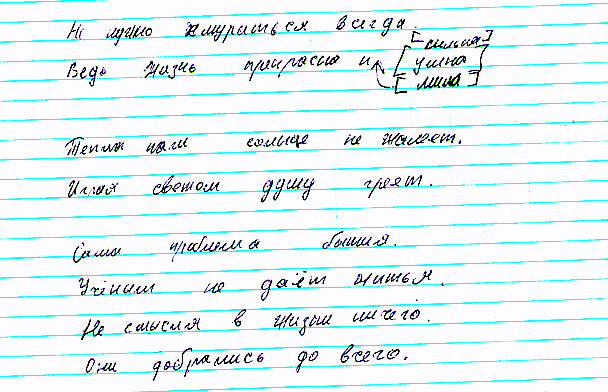 Не нужно хмуриться всегда.
[сильна]
Ведь жизнь прекрасна и [умна]
[мила]
Тепла нам солнце не жалеет.
Играя светом душу греет.
Сама проблема бытия.
Учёным не даёт житья.
Не смысля в жизни ничего.
Они добрались до всего.